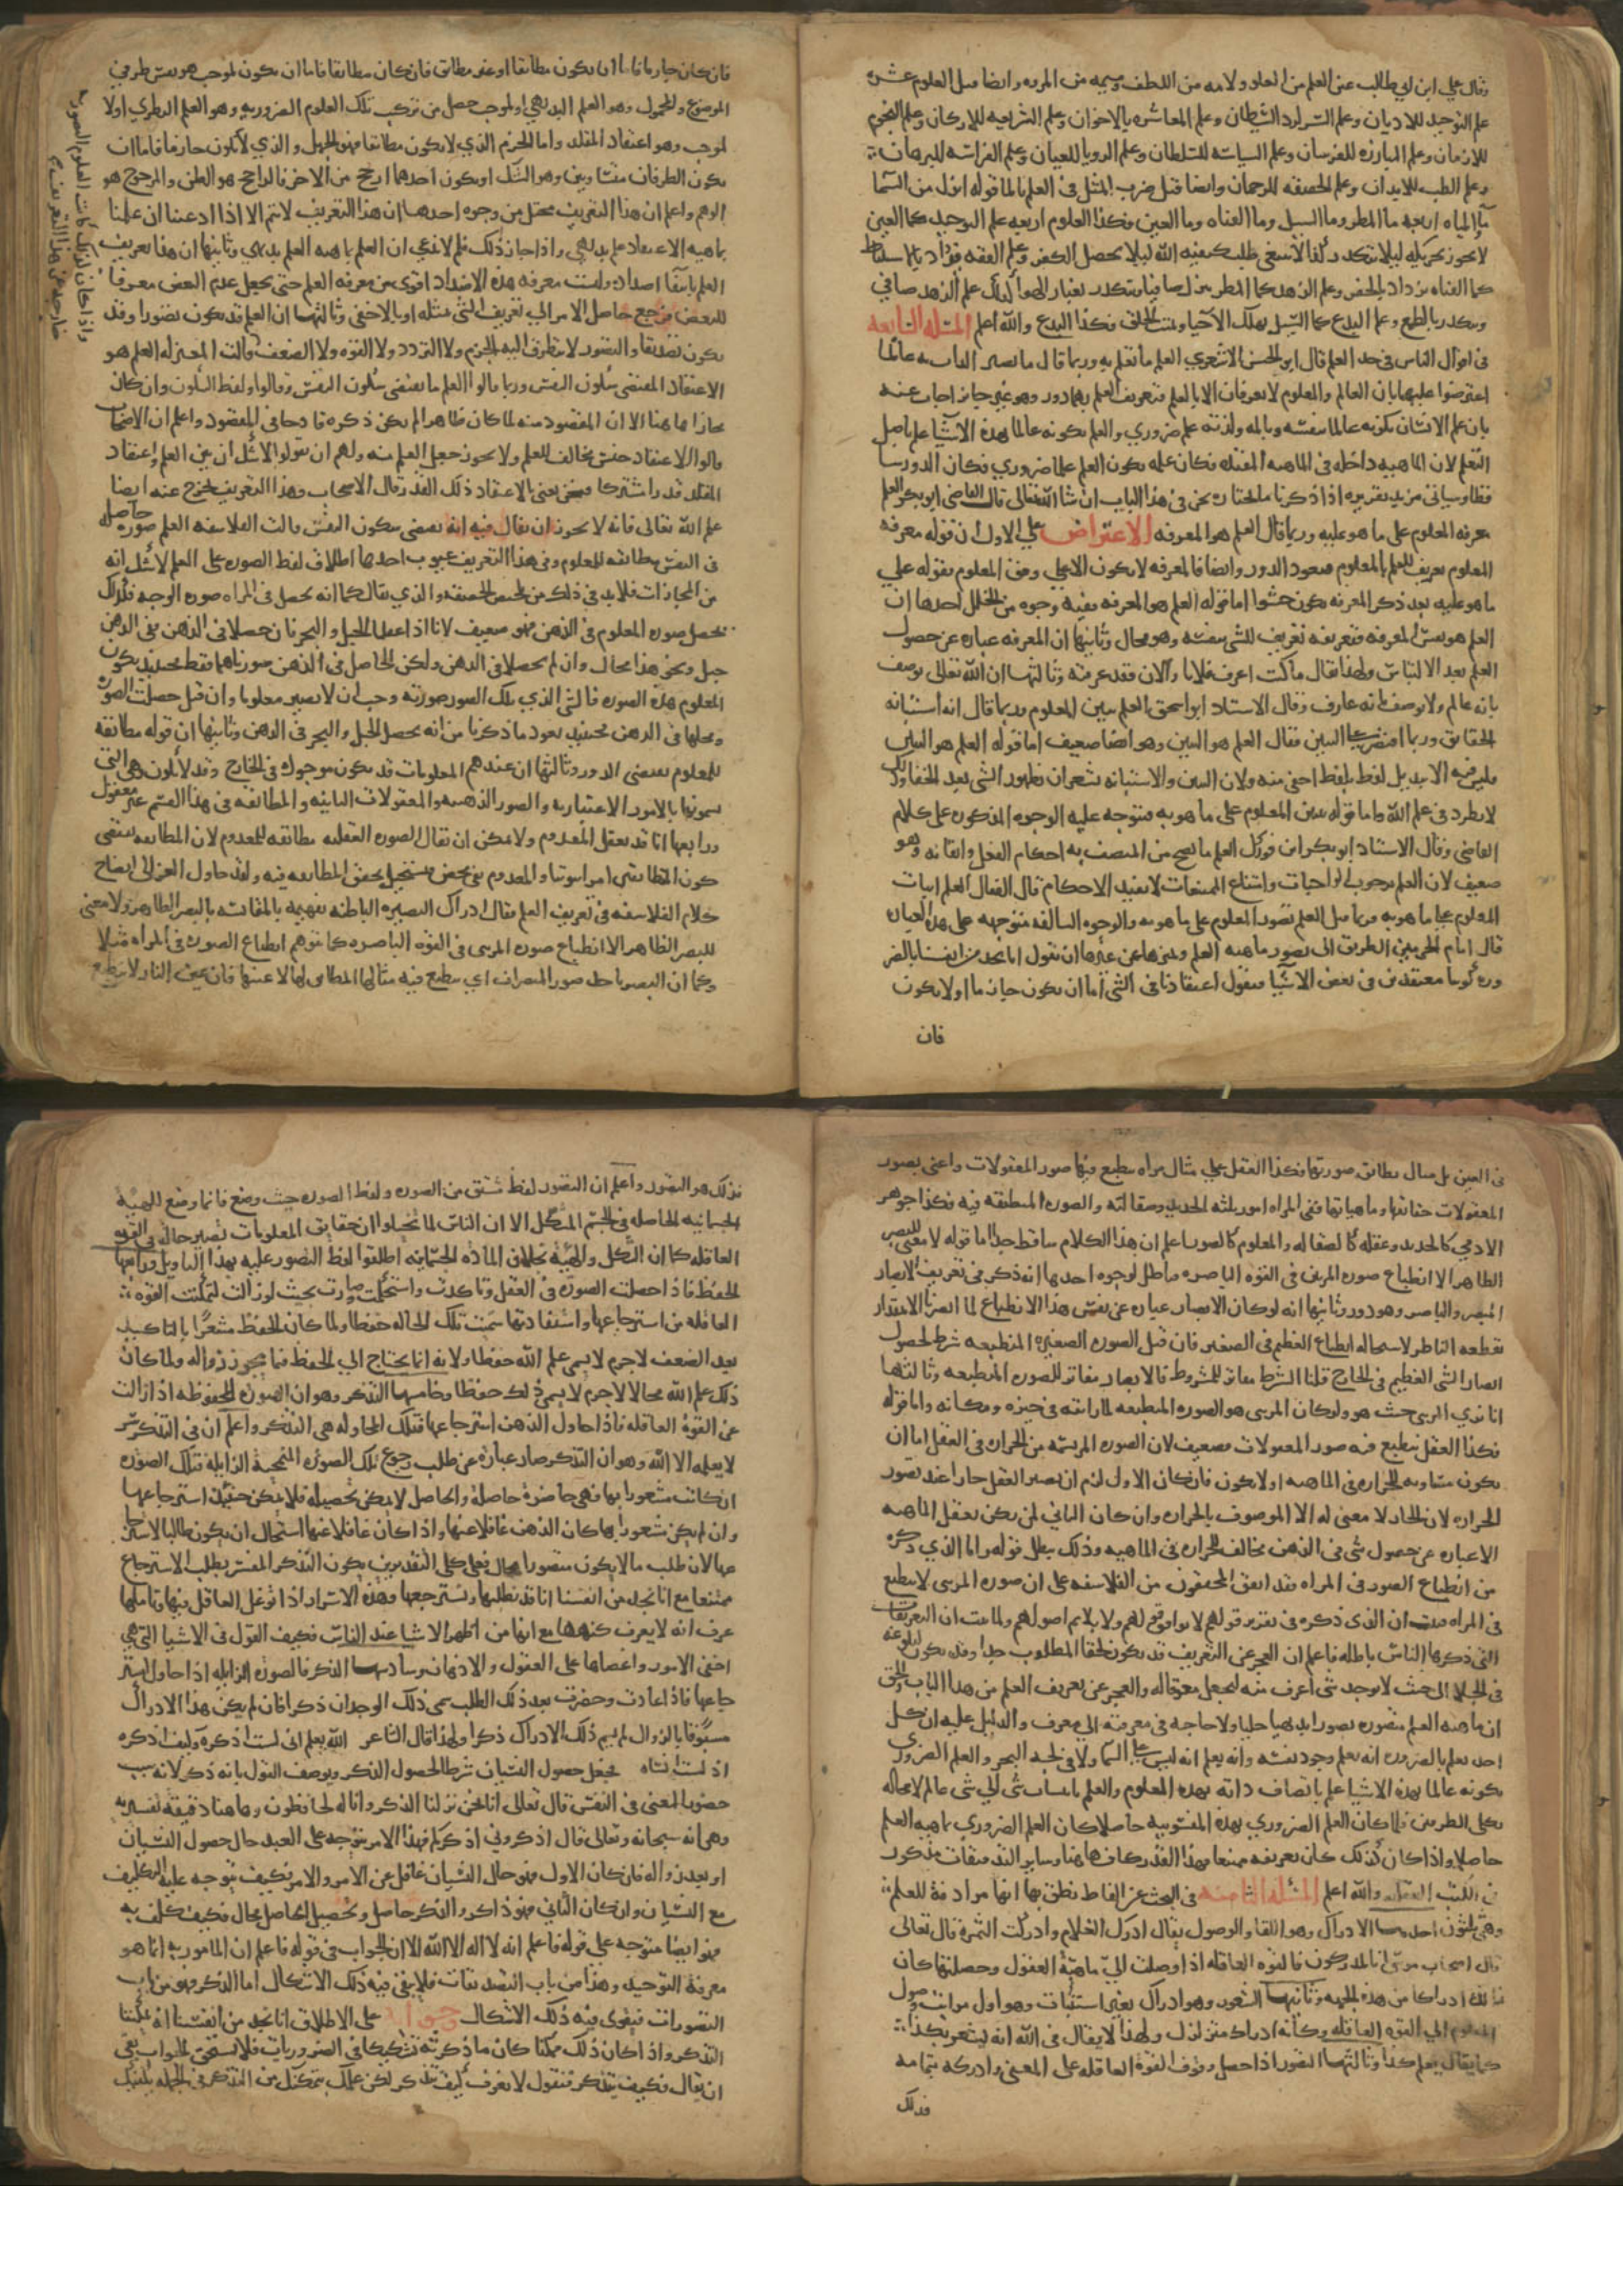 وقال علي ابن ابي طالب عين العلم من العلو ولامه من اللطف وميمه من المروه وايضا قيل العلوم عشره
علم التوحيد للاديان وعلم السر لرد الشيطان وعلم المعاشره بالاخوان وعلم الشريعه للاركان وعلم النجوم
للازمان وعلم المبارزه للفرسان وعلم السياسه للسلطان وعلم الرويا للعيان وعلم الفراسه للبرهان
وعلم الطب للابدان وعلم الحقيقه للرحمان وايضا قيل ضرب المثل في العلم بالما قوله انزل من السما
ما المياه اربعه ما المطر وما السيل وما القناه وما العين فكذا العلوم اربعه علم التوحيد كما العين
لا يجوز تحريكه ليلا يتكدر وكذا لا ينبغي طلب كيفيه الله ليلا يحصل الكفر وعلم الفقه يزداد بالاستنباط
كما القناه يزداد بالحفر وعلم الزهد كما المطر ينزل صافيا ويتكدر بغبار الهوا كذلك علم الزهد صافي
ويتكدر بالطمع وعلم البدع كما السيل يهلك الاحيا ويميت الخلق فكذا البدع والله اعلم المسئله السابعه
في اقوال الناس في حد العلم قال ابو الحسن الاشعري العلم ما نعلم به وربما قال ما يصير الذات به عالما
اعترضوا عليهما بان العالم والمعلوم لا يعرفان الا بالعلم فتعريف العلم بهما دور وهو غير جايز اجاب عنه
بان علم الانسان بكونه عالما بنفسه وبالمه ولذته علم ضروري والعلم بكونه عالما بهذه الاشيا علم باصل
العلم لان الماهيه داخله في الماهيه المقيده فكان علمه بكون العلم علما ضروري فكان الدور ساقطا
وسياتي مزيد تقريره اذا ذكرنا ما نختاره نحن في هذا الباب ان شا الله تعالى قال القاضي ابو بكر العلم
معرفه المعلوم على ما هو عليه وربما قال العلم هو المعرفه الاعتراض على الاول ان قوله معرفه
المعلوم تعريف للعلم بالمعلوم فيعود الدور وايضا فالمعرفه لا يكون الا على وفق المعلوم فقوله على
ما هو عليه بعد ذكر المعرفه يكون حشوا اما قوله العلم هو المعرفه ففيه وجوه من الخلل احدها ان
العلم هو نفس المعرفه فتعريفه تعريف للشي بنفسه وهو محال وثانيها ان المعرفه عباره عن حصول
العلم بعد الالتباس ولهذا يقال ما كنت اعرف فلانا والان فقد عرفته وثالثها ان الله تعالى يوصف
بانه عالم ولا يوصف بانه عارف وقال الاستاد ابو اسحق العلم تبيين المعلوم وربما قال انه استبانه
الحقايق وربما اقتصر على التبيين فقال العلم هو التبيين وهو ايضا ضعيف اما قوله العلم هو التبيين
فليس فيه الا تبديل لفظ بلفظ اخفى منه ولان التبيين والاستبانه يشعران بظهور الشي بعد الخفا وذلك
لا يطرد في علم الله واما قوله تبيين المعلوم على ما هو به فيتوجه عليه الوجوه المذكوره على كلام
القاضي وقال الاستاد ابو بكر ابن فورك العلم ما يصح من المتصف به احكام الفعل واتقانه وهو
ضعيف لان العلم بوجوب الواجبات وامتناع الممتنعات لا يفيد الاحكام قال القفال العلم اثبات
المعلوم على ما هو به وربما قيل العلم تصور المعلوم على ما هو به والوجوه السالفه متوجهه على هذه العباره
قال امام الحرمين الطريق الى تصور ماهيه العلم وتميزها عن غيرها ان نقول انا نجد من انفسنا بالضر
وره كوننا معتقدين في بعض الاشيا فنقول اعتقادنا في الشي اما ان يكون جازما او لا يكون
فان
فان كان جازما فاما ان يكون مطابقا او غير مطابق فان كان مطابقا فاما ان يكون لموجب هو نفس طرفي
الموضوع والمحمول وهو العلم البديهي او لموجب حصل من تركب تلك العلوم الضروريه وهو العلم النظري او لا
لموجب وهو اعتقاد المقلد واما الجزم الذي لا يكون مطابقا فهو الجهل والذي لا يكون جازما فاما ان
يكون الطرفان متساويين وهو الشك او يكون احدهما ارجح من الاخر فالراجح هو الظن والمرجوح هو
الوهم واعلم ان هذا التعريف مختل من وجوه احدها ان هذا التعريف لا يتم الا اذا ادعينا ان علمنا
بماهيه الاعتقاد علم بديهي واذا جاز ذلك فلم لا ندعي ان العلم بماهيه العلم بديهي وثانيها ان هذا تعريف
العلم بانتفا اضداده وليست معرفه هذه الاضداد اقوى من معرفه العلم حتى يجعل عدم النقيض معرفا
للنقيض فرجع حاصل الامر الى تعريف الشي بمثله او بالاخفى وثالثها ان العلم قد يكون تصورا وقد
يكون تصديقا والتصور لا يتطرق اليه الجزم ولا التردد ولا القوه ولا الضعف
واذا كان كذلك كانت العلوم التصوريه
خارجه عن هذا التعريف
قالت المعتزله العلم هو
الاعتقاد المقتضي سكون النفس وربما قالوا العلم ما يقتضي سكون النفس وقالوا ولفظ السكون وان كان
مجازا هاهنا الا ان المقصود منه لما كان ظاهرا لم يكن ذكره قادحا في المقصود واعلم ان الاصحاب
قالوا الاعتقاد جنس مخالف للعلم ولا يجوز جعل العلم منه ولهم ان يقولوا لا شك ان بين العلم واعتقاد
المقلد قدرا مشتركا فنحن نعني بالاعتقاد ذلك القدر قال الاصحاب وهذا التعريف يخرج عنه ايضا
علم الله تعالى فانه لا يجوز ان يقال فيه انه يقتضي سكون النفس قالت الفلاسفه العلم صوره حاصله
في النفس مطابقه للمعلوم وفي هذا التعريف عيوب احدها اطلاق لفظ الصوره على العلم لا شك انه
من المجازات فلا بد في ذلك من تلخيص الحقيقه والذي يقال كما انه يحصل في المراه صوره الوجه فكذلك
تحصل صوره المعلوم في الذهن فهو ضعيف لانا اذا عقلنا الجبل والبحر فان حصلا في الذهن ففي الذهن
جبل وبحر هذا محال وان لم يحصلا في الذهن ولكن الحاصل في الذهن صورتاهما فقط فحينيذ يكون
المعلوم هذه الصوره فالشي الذي تلك الصوره صورته وجب ان لا يصير معلوما وان قيل حصلت الصوره
ومحلها في الذهن فحينيذ يعود ما ذكرنا من انه يحصل الجبل والبحر في الذهن وثانيها ان قوله مطابقه
للمعلوم يقتضي الدور وثالثها ان عندهم المعلومات قد يكون موجوده في الخارج وقد لا يكون وهي التي
يسمونها بالامور الاعتباريه والصور الذهنيه والمعقولات الثانيه والمطابقه في هذا القسم غير معقول
ورابعها انا قد نعقل المعدوم ولا يمكن ان يقال الصوره العقليه مطابقه للمعدوم لان المطابقه تقتضي
كون المتطابقين امرا ثبوتيا والمعدوم نفي محض يستحيل تحقق المطابقه فيه ولقد حاول الغزالي ايضاح
كلام الفلاسفه في تعريف العلم فقال ادراك البصيره الباطنه نفهمه بالمقايسه بالبصر الظاهر ولا معنى
للبصر الظاهر الا انطباع صوره المرئي في القوه الباصره كما نتوهم انطباع الصوره في المراه مثلا
وكما ان البصر ياخذ صور المبصرات اي ينطبع فيه مثالها المطابق لها لا عينها فان عين النار لا ينطبع
في العين بل مثال يطابق صورتها فكذا العقل على مثال مراه ينطبع فيها صور المعقولات واعني بصور
المعقولات حقايقها وماهياتها ففي المراه امور ثلثه الحديد وصقالته والصوره المنطبعه فيه فكذا جوهر
الادمي كالحديد وعقله كالصقاله والمعلوم كالصوره اعلم ان هذا الكلام ساقط جدا اما قوله لا معنى للبصر
الظاهر الا انطباع صوره المرئي في القوه الباصره فباطل لوجوه احدها انه ذكر في تعريف الابصار
المبصر والباصر وهو دور وثانيها انه لو كان الابصار عباره عن نفس هذا الانطباع لما ابصرنا الا بمقدار
نقطه الناظر لاستحاله انطباع العظيم في الصغير فان قيل الصوره الصغيره المنطبعه شرط لحصول
ابصار الشي العظيم في الخارج قلنا الشرط مغاير للمشروط فالابصار مغاير للصوره المنطبعه وثالثها
انا نرى المرئي حيث هو ولو كان المرئي هو الصوره المنطبعه لما رايته في حيزه ومكانه واما قوله
فكذا العقل ينطبع فيه صور المعقولات فضعيف لان الصوره المرتسمه من الحراره في العقل اما ان
يكون مساويه للحراره في الماهيه او لا يكون فان كان الاول لزم ان يصير العقل حارا عند تصور
الحراره لان الحار لا معنى له الا الموصوف بالحراره وان كان الثاني لم يكن تعقل الماهيه
الا عباره عن حصول شي في الذهن مخالف للحراره في الماهيه وذلك يبطل قوله واما الذي ذكره
من انطباع الصور في المراه فقد اتفق المحققون من الفلاسفه على ان صوره المرئي لا ينطبع
في المراه فثبت ان الذي ذكره في تقرير قولهم لا يوافق قولهم ولا يلايم اصولهم ولما ثبت ان التعريفات
التي ذكرها الناس باطله فاعلم ان العجز عن التعريف قد يكون لخفا المطلوب جدا وقد يكون لبلوغه
في الجلا الى حيث لا يوجد شي اعرف منه ليجعل معرفا له والعجز عن تعريف العلم من هذا الباب والحق
ان ماهيه العلم متصوره تصورا بديهيا جليا ولا حاجه في معرفته الى معرف والدليل عليه ان كل
احد يعلم بالضروره انه يعلم وجود نفسه وانه يعلم انه ليس على السما ولا في لجه البحر والعلم الضروري
بكونه عالما بهذه الاشيا علم باتصاف ذاته بهذه العلوم والعلم بانتساب شي الى شي عالم لا محاله
بكلى الطرفين فلما كان العلم الضروري بهذه المنسوبيه حاصلا كان العلم الضروري بماهيه العلم
حاصلا واذا كان كذلك كان تعريفه ممتنعا فهذا القدر كاف هاهنا وساير التدقيقات مذكوره
في الكتب العقليه والله اعلم المسئله الثامنه في البحث عن الفاظ نظن بها انها مرادفة للعلم
وهي ثلثون احدها الادراك وهو اللقا والوصول يقال ادرك الغلام وادركت الثمرة قال تعالى
قال اصحاب موسى انا لمدركون فالقوه العاقله اذا وصلت الى ماهية المعقول وحصلتها كان
ذلك ادراكا من هذه الجهه وثانيها الشعور وهو ادراك بغير استثبات وهو اول مراتب وصول
المعلوم الى القوه العاقله وكانه ادراك متزلزل ولهذا لا يقال في الله انه يشعر بكذا
كما يقال يعلم كذا وثالثها التصور اذا حصل وقوف القوة العاقله على المعنى وادركه بتمامه
فذلك
فذلك هو التصور واعلم ان التصور لفظ مشتق من الصوره ولفظ الصوره حيث وضع فانما وضع للهيئة
الجسمانيه الحاصله في الجسم المتشكل الا ان الناس لما تخيلوا ان حقايق المعلومات تصير حاله في القوه
العاقله كما ان الشكل والهيئة يحلان المادة الجسمانيه اطلقوا لفظ التصور عليه بهذا التاويل ورابعها
الحفظ فاذا حصلت الصورة في العقل وتاكدت واستحكمت وصارت بحيث لو زالت لتمكنت القوة
العاقله من استرجاعها واستعادتها سميت تلك الحاله حفظا ولما كان الحفظ مشعرا بالتاكيد
بعد الضعف لاجرم لا يسمى علم الله حفظا ولانه انما يحتاج الى الحفظ فيما يجوز زواله ولما كان
ذلك علم الله محالا لاجرم لا يسمى ذلك حفظا وخامسها التذكر وهو ان الصورة المحفوظه اذا زالت
عن القوة العاقله فاذا حاول الذهن استرجاعها فتلك المحاوله هي التذكر واعلم ان في التذكر سر
لا يعلمه الا الله وهو ان التذكر صار عبارة عن طلب رجوع تلك الصورة المنمحية الزايلة فتلك الصورة
ان كانت مشعورا بها فهي حاضرة حاصلة والحاصل لا يمكن تحصيله فلا يمكن حينئذ استرجاعها
وان لم يكن مشعورا بها كان الذهن غافلا عنها واذا كان غافلا عنها استحال ان يكون طالبا لاسترجا
عها لان طلب ما لا يكون متصورا محال فعلى كلى التقديرين يكون التذكر المفسر بطلب الاسترجاع
ممتنعا مع انا نجد من انفسنا انا قد نطلبها ونسترجعها وهذه الاسرار اذا توغل العاقل فيها وتاملها
عرف انه لا يعرف كنهها مع انها من اظهر الاشيا عند الناس فكيف القول في الاشيا التي هي
اخفى الامور واعضلها على العقول والاذهان وسادسها الذكر فالصورة الزايله اذا حاول استر
جاعها فاذا عادت وحضرت بعد ذلك الطلب سمي ذلك الوجدان ذكرا فان لم يكن هذا الادراك
مسبوقا بالزوال لم يسم ذلك الادراك ذكرا ولهذا قال الشاعر الله يعلم اني لست اذكره وكيف اذكره
اذ لست انساه فجعل حصول النسيان شرطا لحصول الذكر ويوصف القول بانه ذكر لانه سبب
حصول المعنى في النفس قال تعالى انا نحن نزلنا الذكر وانا له لحافظون وهاهنا دقيقة تفسيريه
وهي انه سبحانه وتعالى قال اذكروني اذكركم فهذا الامر يتوجه على العبد حال حصول النسيان
او بعد زواله فان كان الاول فهو حال النسيان غافل عن الامر والامر تكليف فكيف يتوجه عليه التكليف
مع النسيان وان كان الثاني فهو ذاكر والذكر حاصل وتحصيل الحاصل محال فكيف كلف به
وهو ايضا متوجه على قوله فاعلم انه لا اله الا الله الا ان الجواب في قوله فاعلم ان المامور به انما هو
معرفة التوحيد وهذا من باب التصديقات فلا يبقى فيه ذلك الاشكال اما الذكر فهو من باب
التصورات فيقوى فيه ذلك الاشكال جوابه على الاطلاق انا نجد من انفسنا انه يمكننا
التذكر واذا كان ذلك ممكنا كان ما ذكرته تشكيكا في الضروريات فلا يستحق الجواب بقي
ان يقال فكيف يتذكر فنقول لا نعرف كيف يتذكر لكن علمك بتمكنك من التذكر في الجمله يكفيك